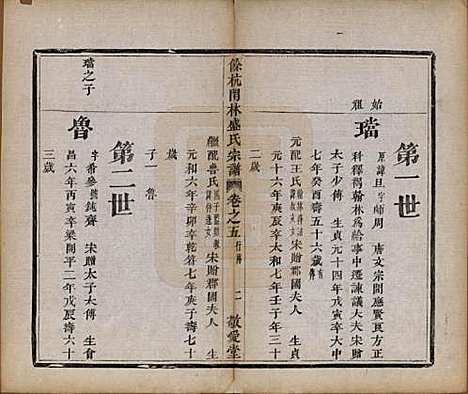 第一世
始祖
璫
原諱旦字師周 唐文宗開應賢良方正
科釋褐翰林爲給事中遷諫議大夫宋贈
太子少傅 生貞元十四年戊寅卒大中
七年癸酉壽五十六歲有傳
元配王氏 宋贈郡國夫人 生貞
元十六年庚辰卒太和七年壬子年三十
二歲
餘杭閑林盛氏宗譜 卷之五 行傳 二 敬愛堂
繼配魯氏 宋贈郡國夫人 生
元和六年辛卯卒乾符七年庚子壽七十
歲
子魯
第二世
璫之子
魯
字希參號鈍齋 宋贈太子太傅 生會
昌六年丙寅卒梁開平二年戊辰壽六十
三歲